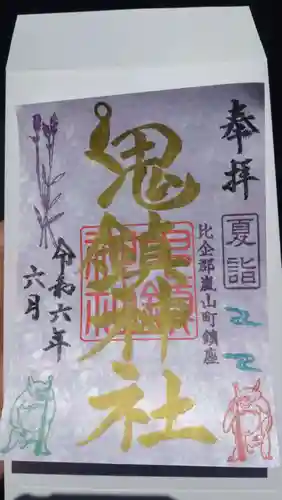 奉拝
夏詣
比企郡嵐山町鎮座
鬼鎮神社
令和六年
六月